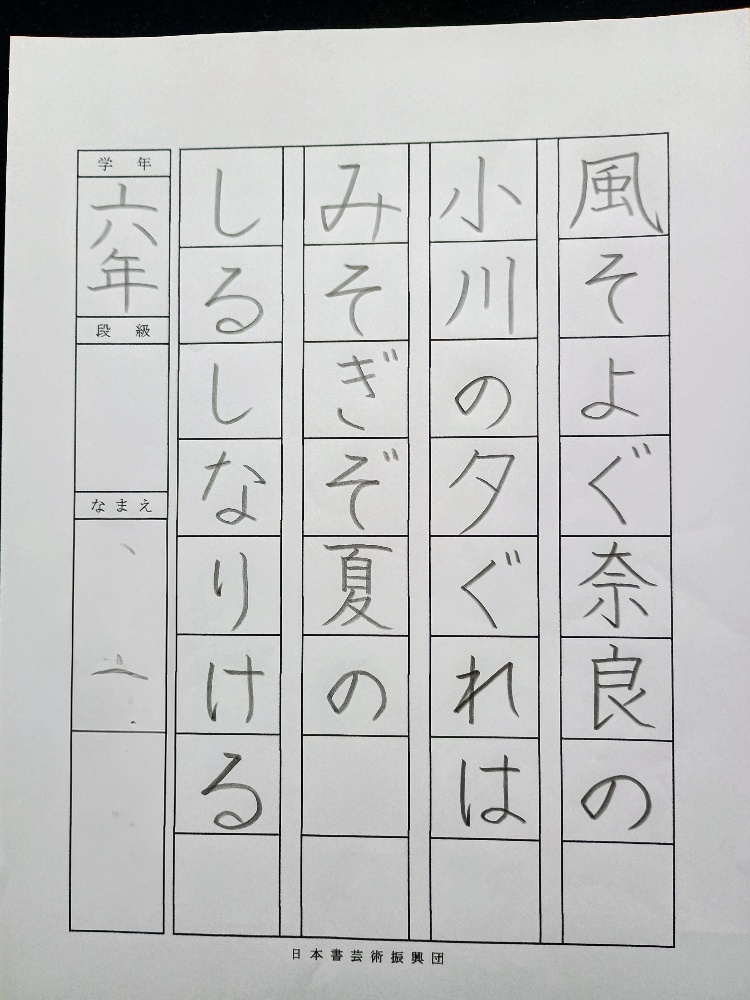 風そよぐ奈良の
小川の夕ぐれは
みそぎぞ夏の
しるしなりける
学年
六年
段級
なまえ
日本書芸術振興団